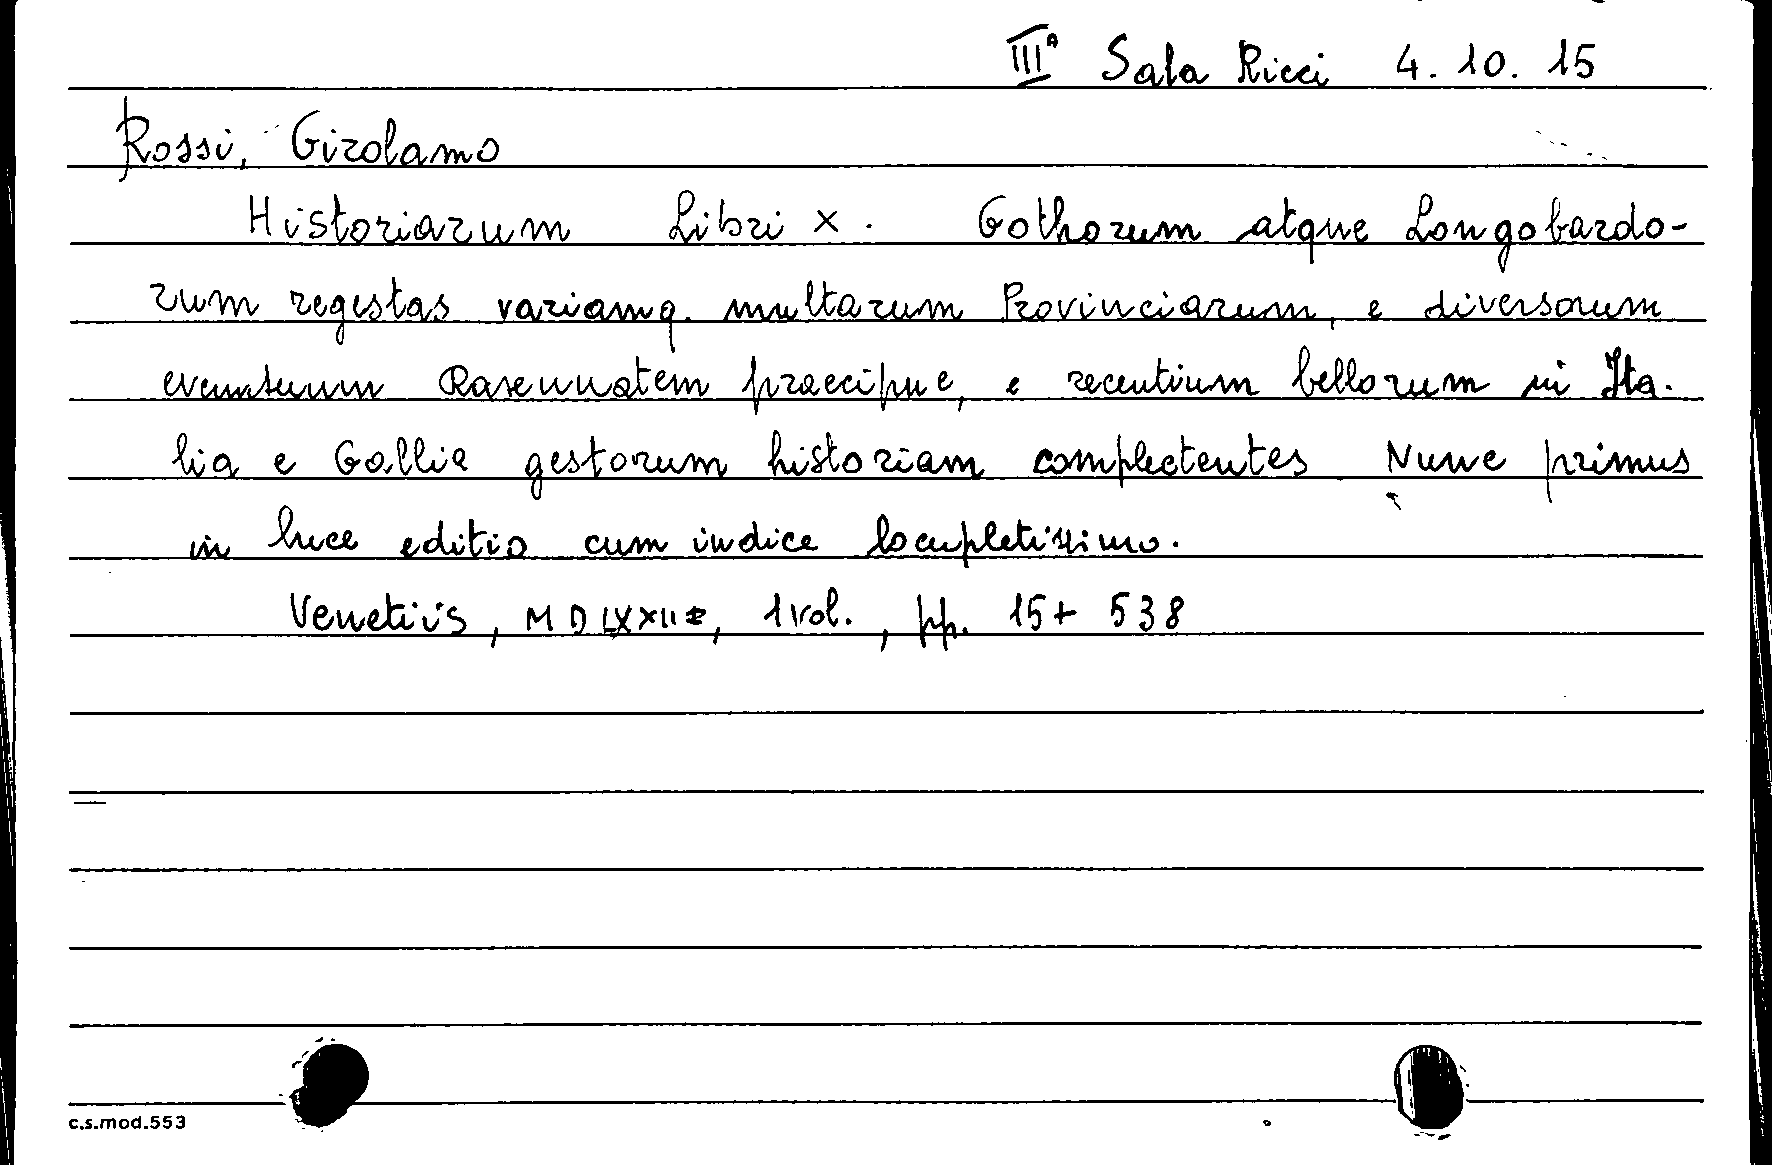 IIIᴬ Sala Ricci 4. 10. 15
Rossi, Girolamo
Historiarum Libri X. Gothorum atque Longobardo-
rum regestas variamq. multarum Provinciarum, e diversorum
eventuum Ravennatem praecipue, e recentium bellorum in Ita-
lia e Gallia gestorum historiam complectentes Nunc primus
in luce editio cum indice locupletissimo.
Venetiis, 1 vol., pp. 15+ 538
c.s.mod.553